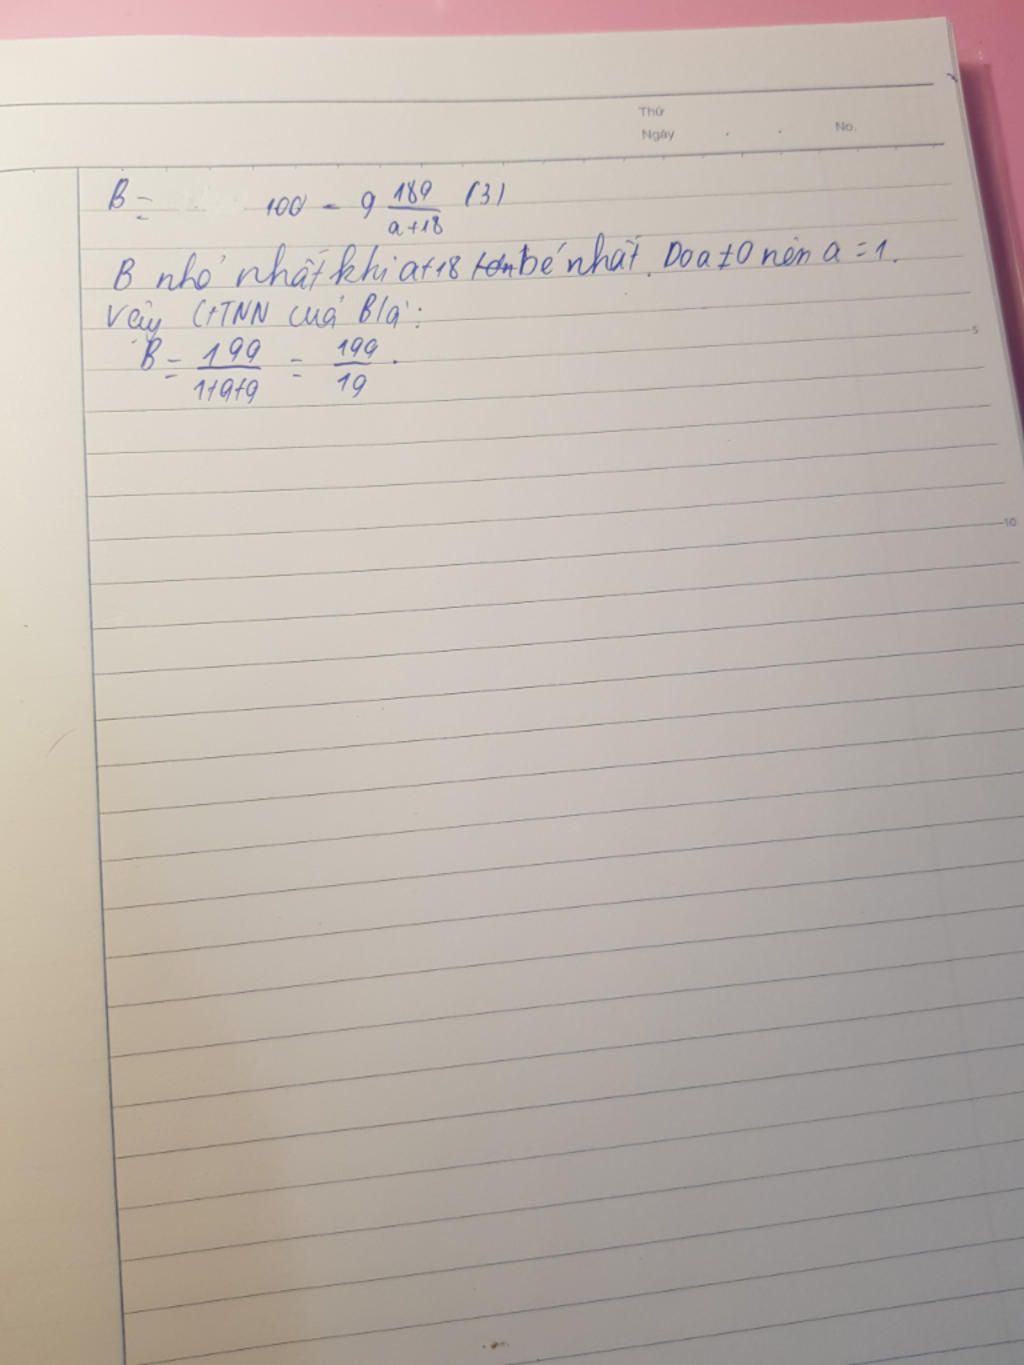 Thứ
Ngày . . No.
B = 100 - 9 189/(a+18) (3)
B nhỏ nhất khi a+18 bé nhất. Do a ≠ 0 nên a = 1.
Vậy GTNN của B là:
B = 199/(1+9+9) = 199/19.
5
10